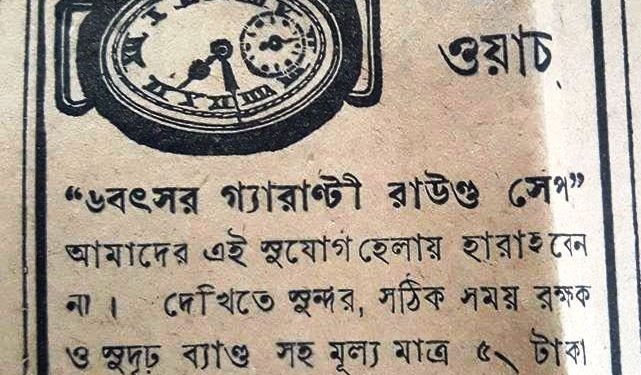 ওয়াচ
“৬বৎসর গ্যারাণ্টী রাউণ্ড সেপ”
আমাদের এই সুযোগ হেলায় হারাইবেন
না । দেখিতে সুন্দর, সঠিক সময় রক্ষক
ও সুদৃঢ় ব্যাণ্ড সহ মূল্য মাত্র ৫৲ টাকা